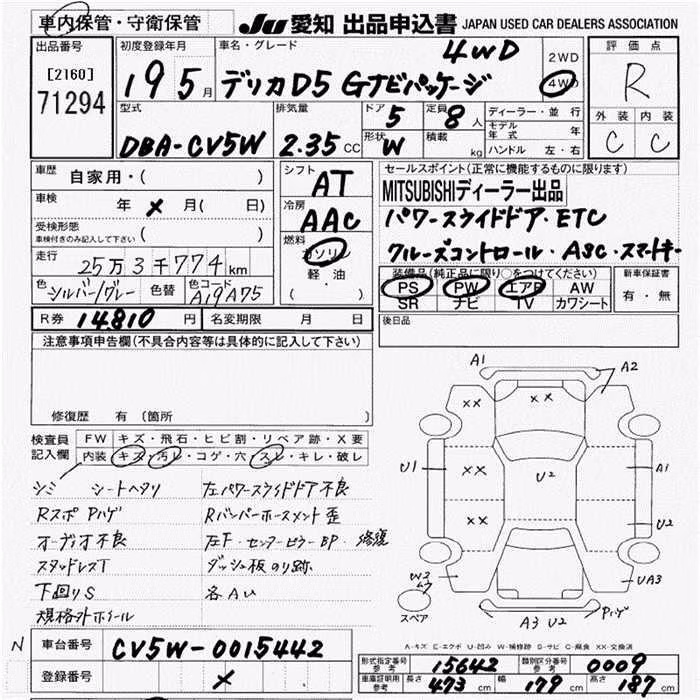 車内保管・守衛保管
JU 愛知 出品申込書 JAPAN USED CAR DEALERS ASSOCIATION
出品番号
[2160]
71294
初度登録年月
19 5月
車名・グレード
4WD
デリカD5 Gナビパッケージ
2WD
4WD
評価点
R
外装 内装
C C
型式
DBA-CV5W
排気量
2.35 CC
ドア 5
形状 W
定員 8人
積載 kg
ディーラー・並行
モデル年式 年
ハンドル 左・右
車歴 自家用・( )
車検 年 × 月( 日)
受検形態
車検付きのみ記入して下さい ( )
走行 25万3千774km
色 シルバー/グレー 色替 色コード A19A75
シフト AT
冷房 AAC
燃料 ガソリン
軽・油
( )
セールスポイント(正常に機能するものに限ります)
MITSUBISHIディーラー出品
パワースライドドア・ETC
クルーズコントロール・ASC・スマートキー
装備品(純正品に限り○をつけてください)
PS PW エアB AW
SR ナビ TV カワシート
新車保証書
有・無
R券 14.810円 名変期限 月 日
後日品
注意事項申告欄(不具合内容等は具体的に記入して下さい)
修復歴 有(箇所 )
検査員記入欄
FW キズ・飛石・ヒビ割・リペア跡・X要
内装 キズ・汚レ・コゲ・穴・スレ・キレ・破レ
シミ シートヘタリ 左パワースライドドア不良
Rスポ Pハゲ Rバンパーホースメント歪
オーディオ不良 左F・センターピラーBP・修復
スタッドレスT ダッシュ板のり跡
下回りS 各AU
規格外ホイール
A1 A2
×× ××
U1 ×× U2 A1
×× U2
W3 ムラ UA3
スペア A3 U2 Pハゲ
A-キズ E-エクボ U-凹み W-補修跡 S-サビ C-腐食 XX-交換済
N
車台番号 CV5W-0015442
登録番号 ×
形式指定番号 参考 15642 類別区分番号 参考 0009
車庫証明用 参考 長さ 473 cm 幅 179 cm 高さ 187 cm